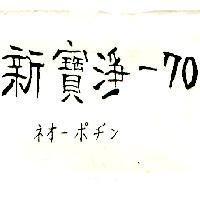 新寶淨-70
ネオ-ポヂン